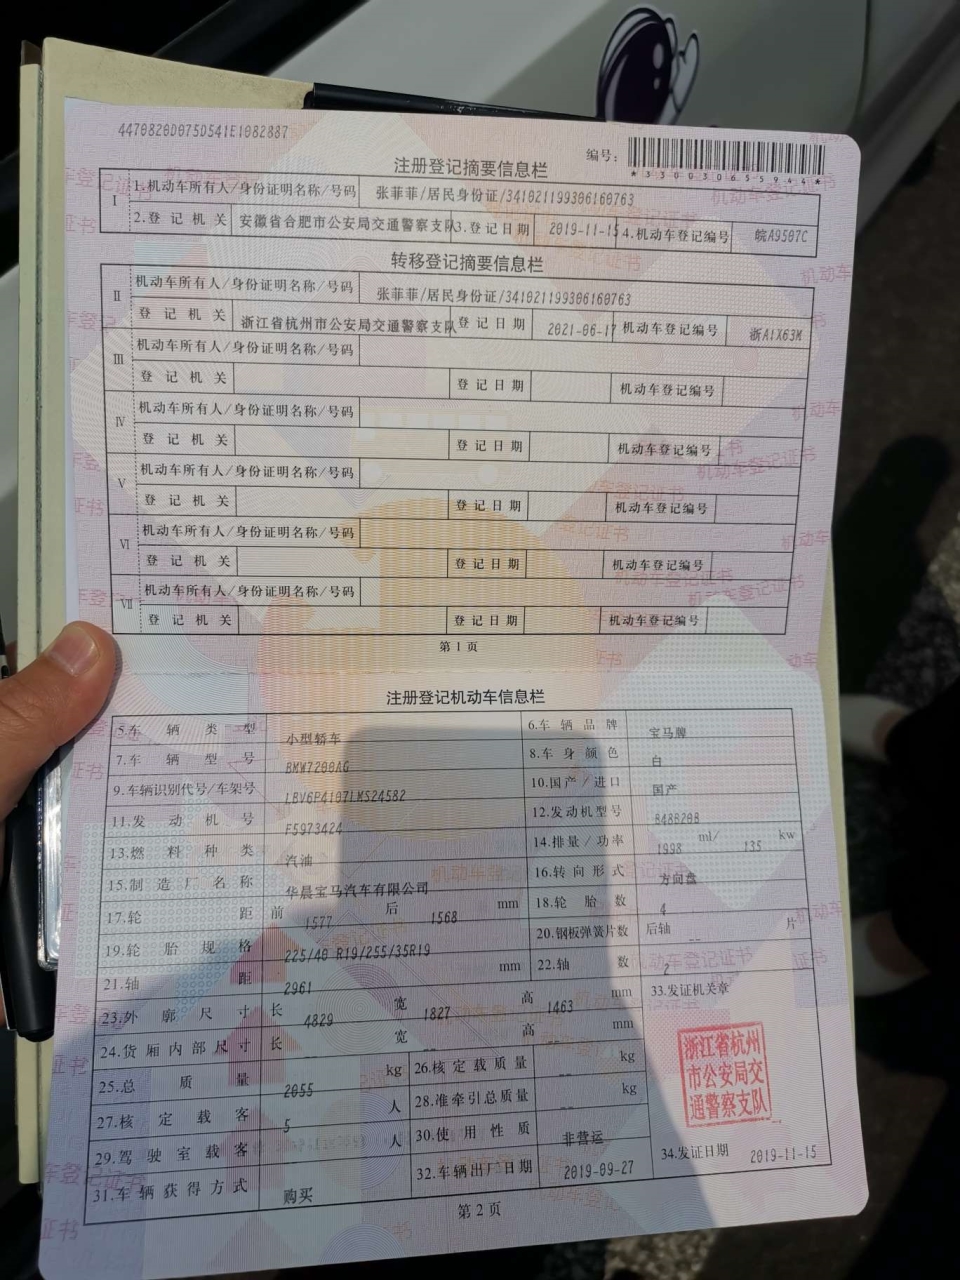 4470820D075D541E1082887
编号：
*330030655944*
注册登记摘要信息栏
I 1.机动车所有人/身份证明名称/号码 张菲菲/居民身份证/341021199306160763
2.登记机关 安徽省合肥市公安局交通警察支队 3.登记日期 2019-11-15 4.机动车登记编号 皖A9507C
转移登记摘要信息栏
II 机动车所有人/身份证明名称/号码 张菲菲/居民身份证/341021199306160763
登记机关 浙江省杭州市公安局交通警察支队 登记日期 2021-06-17 机动车登记编号 浙A1X63M
III 机动车所有人/身份证明名称/号码
登记机关 登记日期 机动车登记编号
IV 机动车所有人/身份证明名称/号码
登记机关 登记日期 机动车登记编号
V 机动车所有人/身份证明名称/号码
登记机关 登记日期 机动车登记编号
VI 机动车所有人/身份证明名称/号码
登记机关 登记日期 机动车登记编号
VII 机动车所有人/身份证明名称/号码
登记机关 登记日期 机动车登记编号
第1页
注册登记机动车信息栏
5.车辆类型 小型轿车 6.车辆品牌 宝马牌
7.车辆型号 BMW7200AG 8.车身颜色 白
9.车辆识别代号/车架号 LBV6P4107LMS24582 10.国产/进口 国产
11.发动机号 F5973424 12.发动机型号 B48B20B
13.燃料种类 汽油 14.排量/功率 1998 ml/ 135 kw
15.制造厂名称 华晨宝马汽车有限公司 16.转向形式 方向盘
17.轮距 前 1577 后 1568 mm 18.轮胎数 4
19.轮胎规格 225/40 R19/255/35R19 20.钢板弹簧片数 后轴 -- 片
21.轴距 2961 mm 22.轴数 2
23.外廓尺寸 长 4829 宽 1827 高 1463 mm 33.发证机关章
24.货厢内部尺寸 长 宽 -- 高 -- mm
25.总质量 2055 kg 26.核定载质量 -- kg
27.核定载客 5 人 28.准牵引总质量 -- kg
29.驾驶室载客 人 30.使用性质 非营运
31.车辆获得方式 购买 32.车辆出厂日期 2019-09-27 34.发证日期 2019-11-15
浙江省杭州
市公安局交
通警察支队
第2页